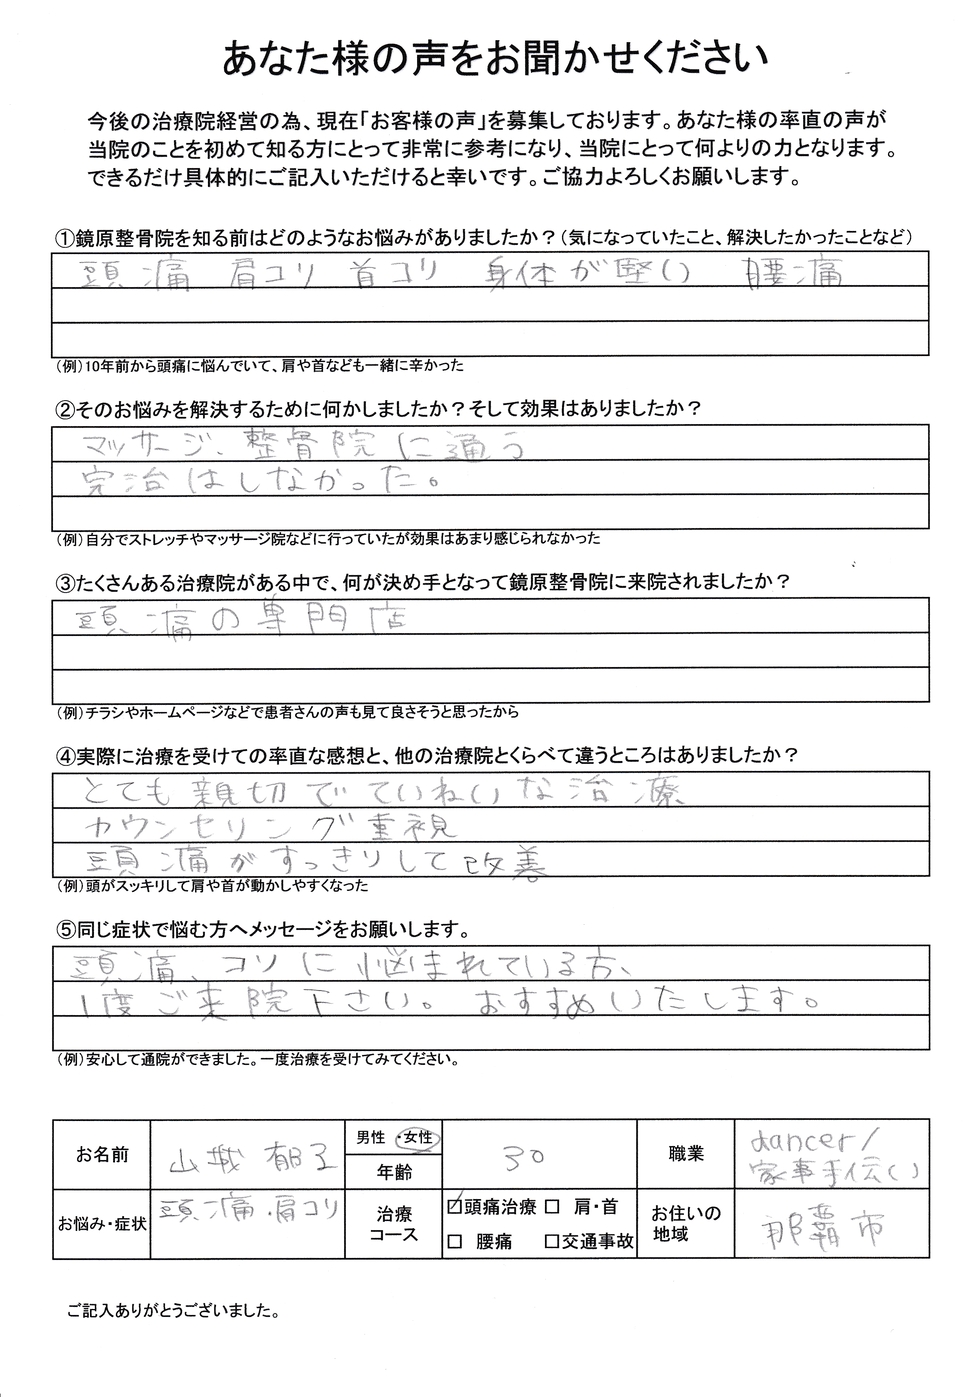 あなた様の声をお聞かせください
今後の治療院経営の為、現在「お客様の声」を募集しております。あなた様の率直の声が
当院のことを初めて知る方にとって非常に参考になり、当院にとって何よりの力となります。
できるだけ具体的にご記入いただけると幸いです。ご協力よろしくお願いします。
①鏡原整骨院を知る前はどのようなお悩みがありましたか？（気になっていたこと、解決したかったことなど）
頭痛 肩コリ 首コリ 身体が堅い 腰痛
（例）10年前から頭痛に悩んでいて、肩や首なども一緒に辛かった
②そのお悩みを解決するために何かしましたか？そして効果はありましたか？
マッサージ、整骨院に通う
完治はしなかった。
（例）自分でストレッチやマッサージ院などに行っていたが効果はあまり感じられなかった
③たくさんある治療院がある中で、何が決め手となって鏡原整骨院に来院されましたか？
頭痛の専門店
（例）チラシやホームページなどで患者さんの声も見て良さそうと思ったから
④実際に治療を受けての率直な感想と、他の治療院とくらべて違うところはありましたか？
とても親切でていねいな治療
カウンセリング重視
頭痛がすっきりして改善
（例）頭がスッキリして肩や首が動かしやすくなった
⑤同じ症状で悩む方へメッセージをお願いします。
頭痛、コリに悩まれている方、
1度ご来院下さい。おすすめいたします。
（例）安心して通院ができました。一度治療を受けてみてください。
お名前 山城 郁子 男性・女性 年齢 30 職業 dancer/家事手伝い
お悩み・症状 頭痛・肩コリ 治療コース ☑頭痛治療 □ 肩・首 □ 腰痛 □交通事故 お住いの地域 那覇市
ご記入ありがとうございました。